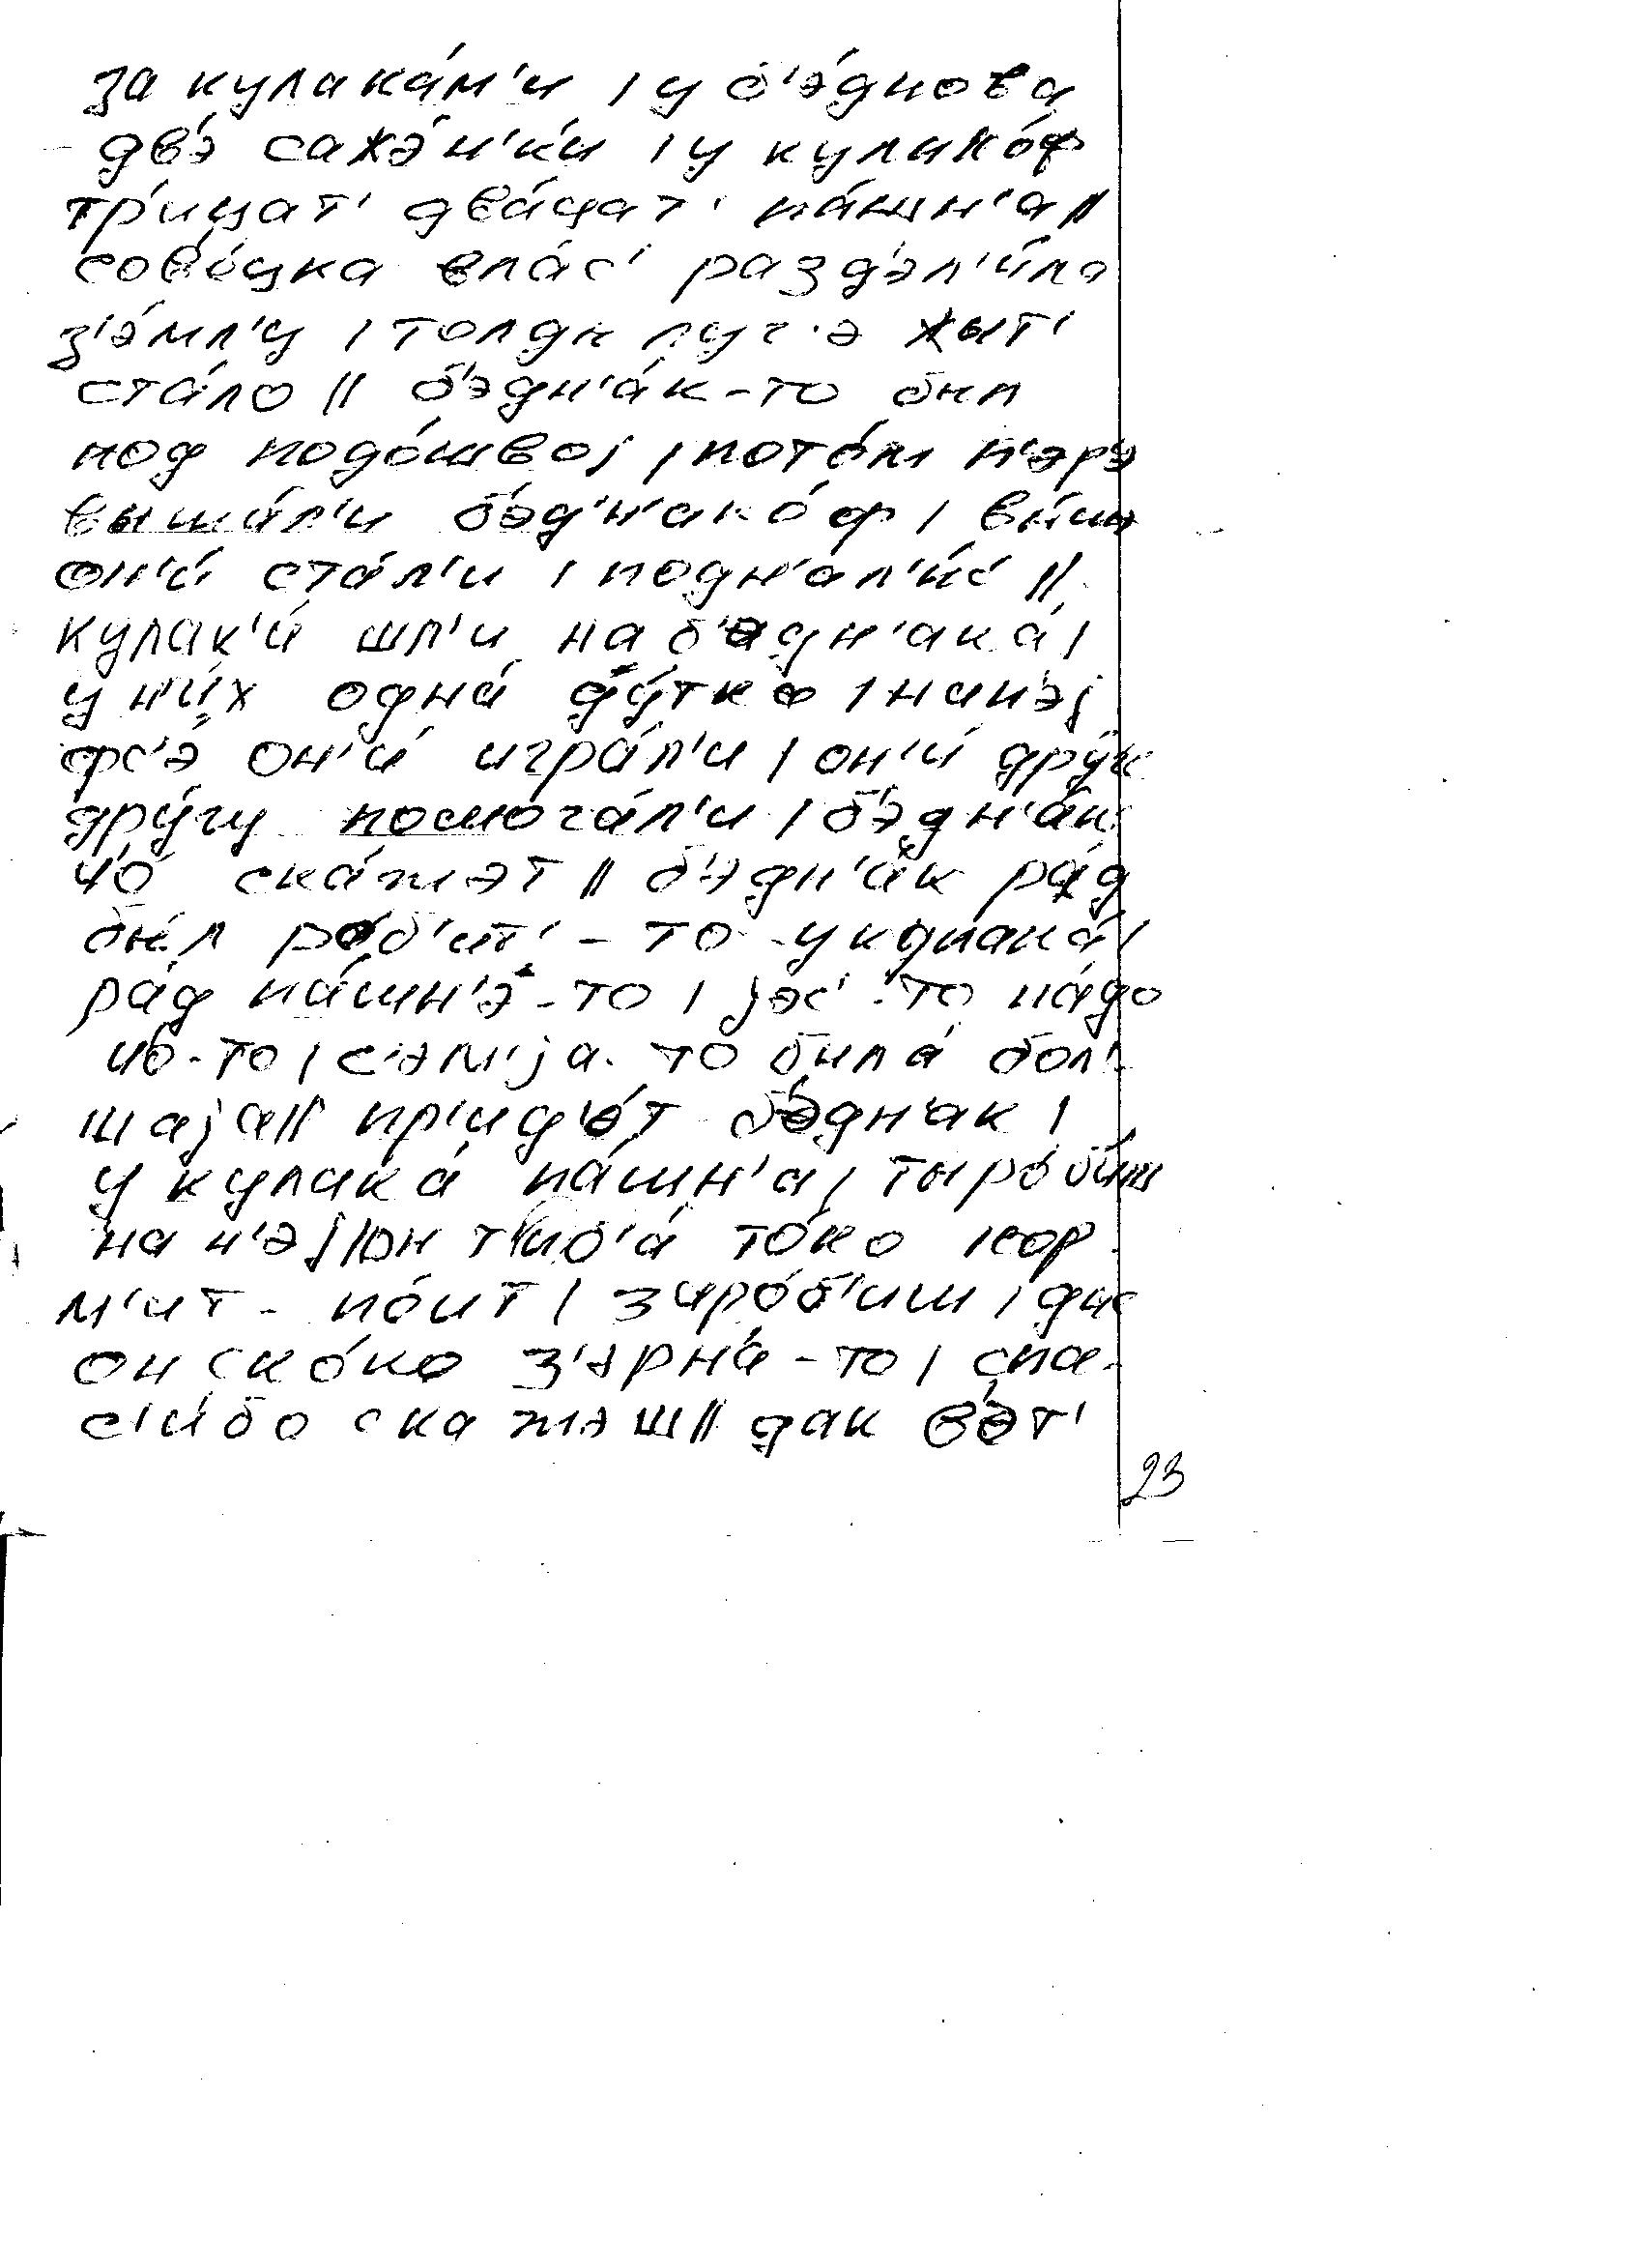 за кулака́м'и / у б'э́днова
дв'э́ сажэ́н'к'и / у кулако́ф
тр'и́цат' два́цат' па́шн'а //
сов'е́цка влас'т' раздэл'и́ла
з'э́мл'у / толды луч'э жыт'
ста́ло // б'эдн'а́к-то был
под подо́швоj / пото́м п'эрэ
выша́л'и б'эд'н'ако́ф / вы́шэ
он'и́ ста́л'и / подн'ал'и́с' //
кулак'и́ шл'и на б'эдн'ака́ /
у н'и́х одна́ ду́тка / на н'эj
фс'э́ он'и́ игра́л'и / он'и́ дру́к
дру́гу помога́л'и / б'эдн'а́к
чо́ ска́жэт // б'эдн'а́к рад
был ро́б'ит'-то у кулака́ /
ра́д па́шн'э-то / jэс'-то на́до
чо-то / с'эм'jа-то была́ бол'-
шаjа // пр'ид'о́т б'э́дн'ак /
у кулака́ па́шн'а / ты ро́б'иш
на н'эj / он т'иб'а́ то́ко кор-
м'ит-по́ит / зиро́б'иш / дас
он ско́ко з'эрна́-то / спа-
с'и́бо скажэш // дак в'эт'
23